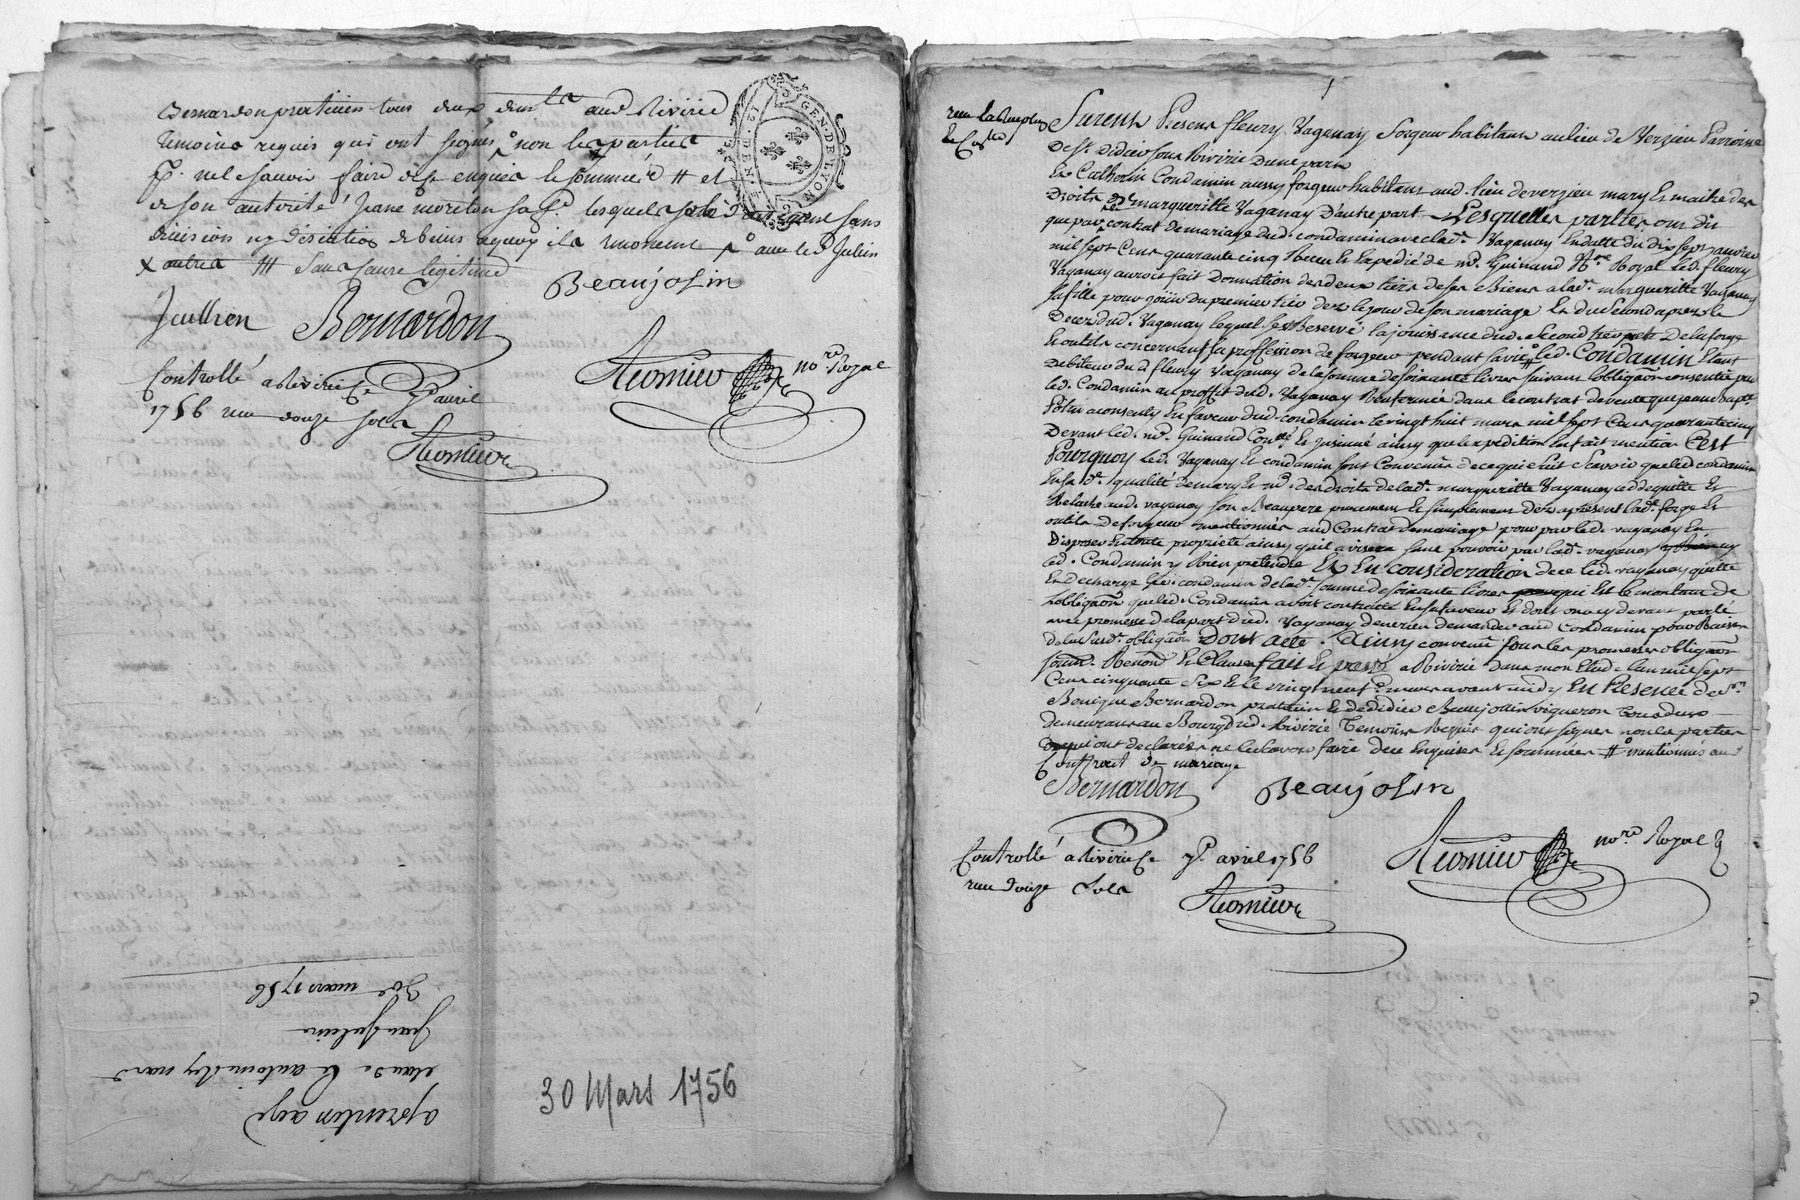 Bernardon praticien tous deux dud Riviried
temoins requis qui ont signés non les parties
ne le savoir faire de ce enquis et sommée # et
de son autorité Jeane moreton sa fe. lesquels sans
division ny discution de biens
x autres ## sans cause legitime
Beaujolin
Jullien Bernardon
Controllé a Riviriee le 7e avril
1756 reçu douze sols
nore Royal
30e mars 1756
Jean Juliein
claude & antoine Reynard
aprentissage
30 Mars 1756
GEN. DE LYON
Furent Presens fleury Vaganay forgeur habitant au lieu de Verzieu Parroisse
De St. Didier sous Rivirie D'une part
Et Catherin Condamin aussy forgeur habitant aud. lieu de verzieu mary et maitre des
Droits de margueritte Vaganay D'autre part Lesquelles parties ont dit
que par contrat de mariage dud. condamin avec lad. Vaganay En datte du dix sept janvier
mil sept Cens quarante cinq Receu et Expedié de me. Guinand Nore Royal led. fleury
Vaganay auroit fait Donnation des deux tiers de ses Biens a lad. margueritte Vaganay
sa fille pour jouir du premier tier dez le jour de son mariage Et du second apres le
Decez dud. Vaganay lequel s'est Reservé la jouissance dud. second tier De la forge
Et outils concernant sa proffession de forgeur pendant sa vie led. Condamin Etant
Debiteur du d. fleury Vaganay de la somme de soixante livres suivant l'obligaõn consentie par
led. Condamin au proffit dud. Vaganay Renfermée dans le contrat de vente que jean bapte.
en faveur dud. condamin le vingt huit mars mil sept Cens quarante cinq
Devant led. me. Guinand Conllé Et Insinué ainsy que l'expedition En fait mention C'est
Pourquoy led. Vaganay Et condamin sont Convenus de ce qui suit Scavoir que led. condamin
En sa de. qualité de mary et me. des droits de lad. margueritte Vaganay cedde quitte Et
Relache aud. vaganay son Beaupere purement Et simplement dez apresent lade. forge Et
outils De forgeur mentionnés aud Contrat de mariage pour par led. vaganay En
Disposer En toute proprieté ainsy qu'il avisera sans pouvoir par lad. vaganay
led. Condamin y Rien pretendre Et En consideration de ce led. vaganay quitte
Et Decharge led. condamin de lade. somme de soixante livres qui Est le montant de
L'obligaõn que led. Condamin avoit contractée En sa faveur Et dont on a cy devant parlé
avec promesse de la part dud. Vaganay de ne rien demander aud Condamin pour Raison
de lad. susd. obligaõn Dont acte. Ainsy convenu sous les promesses obligaõn
soum. Renonõ Et Clauses fait Et passé a Rivirié dans mon Etude l'an mil sept
Cens cinquante six Et le vingt neufe mars avant midy En Presence de sr.
Benigne Bernardon praticien Et de didier Beaujolin vigneron tous deux
demeurans au Bourg dud. Rivirié Temoins Requis qui ont signes non les parties
qui ont declarées ne le sçavoir faire de ce Enquises Et sommées # mentionnés aud
Contract de mariage
Bernardon Beaujolin
nore. Royal
Controllé a Riviriee le 7e. avril 1756
reçu douze sols